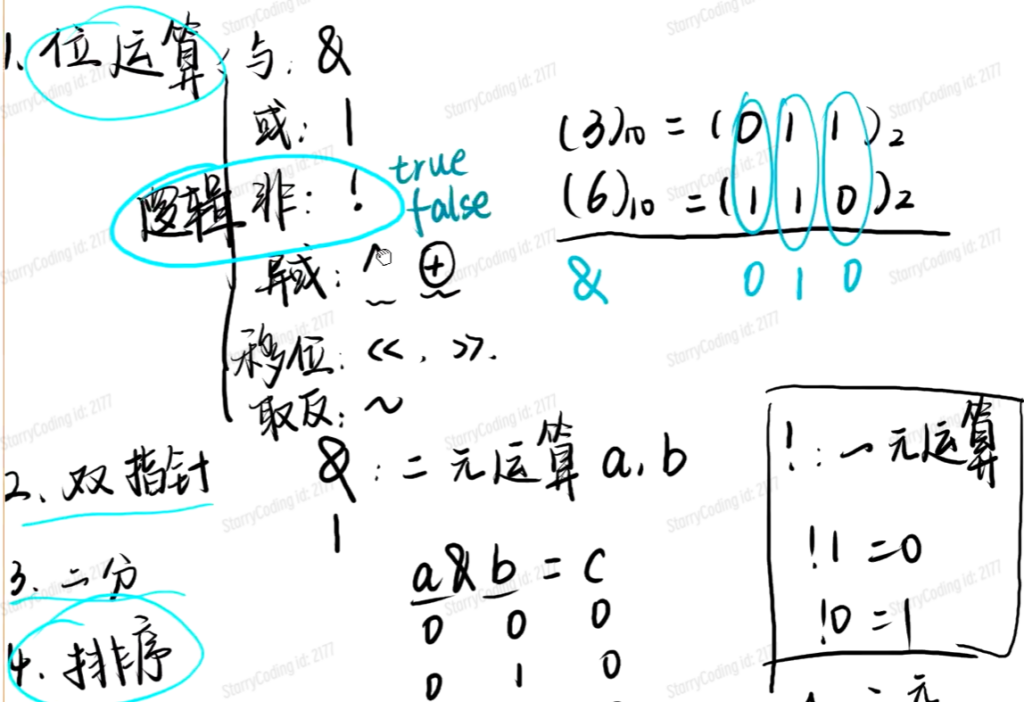 1. 位运算: 与: &
或: |
逻辑 非: ! true false
异或: ^ ⊕
移位: <<, >>.
取反: ~
(3)10 = (0 1 1)2
(6)10 = (1 1 0)2
& 0 1 0
2、双指针
&: 二元运算 a, b
|
a & b = c
0 0 0
0 1 0
3、二分
4、排序
!: 一元运算
!1 = 0
!0 = 1
StarryCoding id: 2177